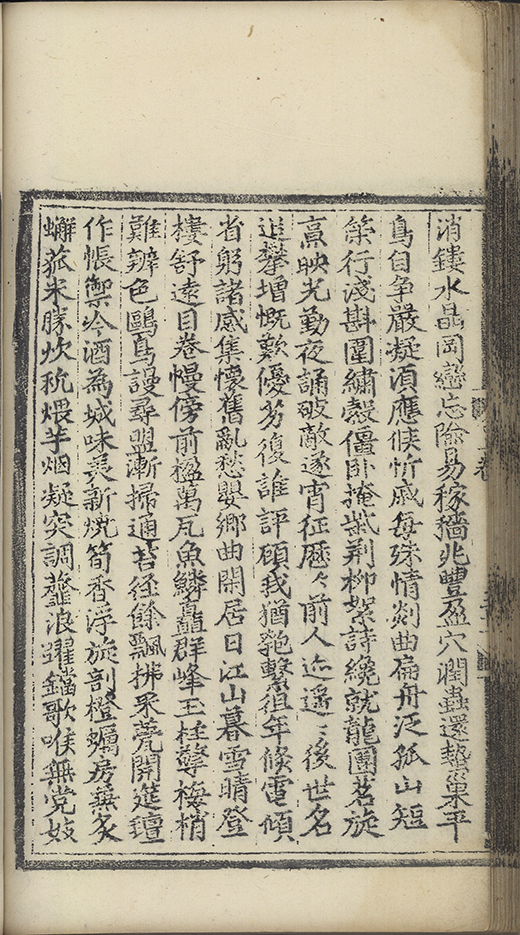 消鏤水晶岡巒忘險易稼穡兆豐盈穴潤蟲還蟄巢平
鳥自爭嚴凝須應候忻戚每殊情剡曲扁舟泛孤山短
筞行淺斟圍繡縠僵卧掩柴荆柳絮詩纔就龍團茗旋
烹映光勤夜誦破敵遂宵征歷々前人迹遥々後世名
追攀增慨歎優劣復誰評顧我猶匏繫徂年倏電傾
省躬諸感集懷舊亂愁嬰鄉曲閑居日江山暮雪晴登
樓舒遠目卷幔傍前楹萬瓦魚鱗矗群峰玉柱擎梅梢
難辨色鷗鳥謾尋盟漸掃通苔徑餘飄拂罘甍開筵氊
作帳禦冷酒為城味羙新燒筍香浮旋剖橙蠣房無炙
蠏菰米勝炊秔煨芋烟凝突調虀浪躍鐺歌喉無党妓